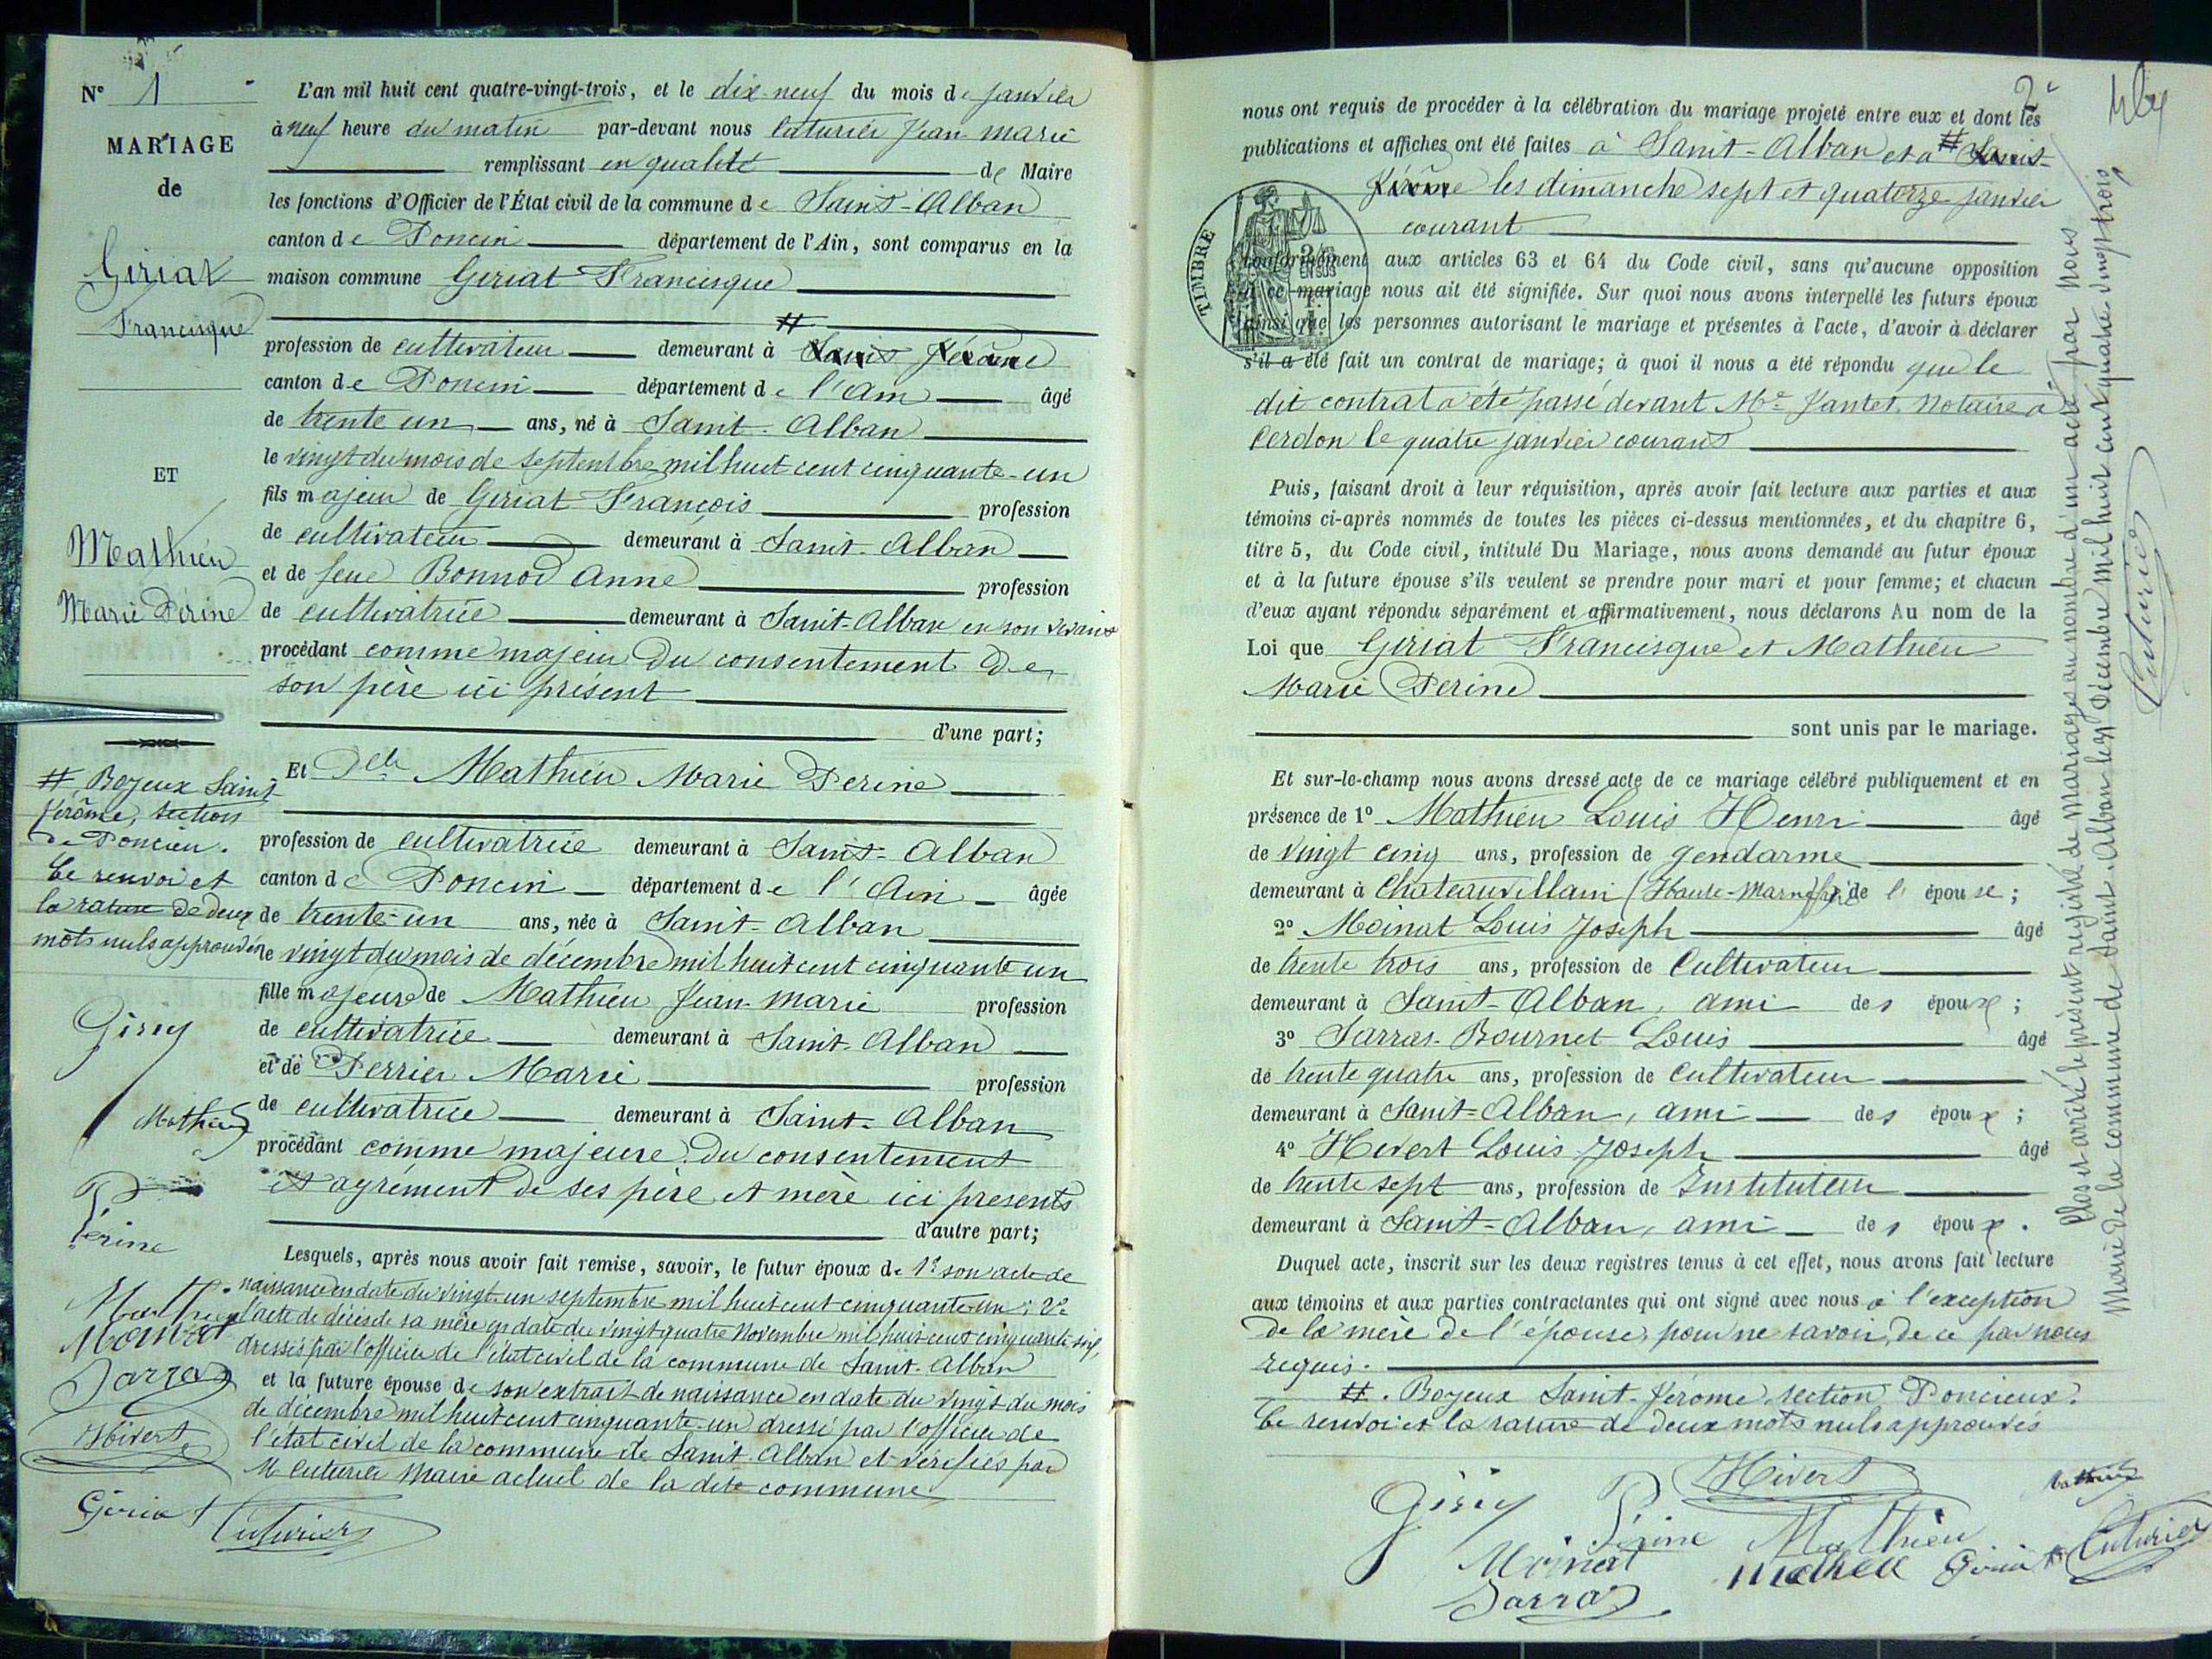 N° 1
MARIAGE
de
Giriat
Francisque
ET
Mathieu
Marie Périne
L'an mil huit cent quatre-vingt-trois, et le dix-neuf du mois de janvier
à neuf heure du matin par-devant nous Cuturier Jean Marie
remplissant en qualité de Maire
les fonctions d'Officier de l'État civil de la commune de Saint-Alban
canton de Poncin département de l'Ain, sont comparus en la
maison commune Giriat Francisque
#
profession de cultivateur demeurant à Saint Jérôme
canton de Poncin département de l'Ain âgé
de trente un ans, né à Saint-Alban
le vingt du mois de septembre mil huit cent cinquante-un
fils majeur de Giriat François profession
de cultivateur demeurant à Saint-Alban
et de feue Bonnod Anne profession
de cultivatrice demeurant à Saint-Alban en son vivant
procédant comme majeur du consentement de
son père ici présent
d'une part;
# Boyeux Saint
Jérôme, section
de Poncieu.
Ce renvoi et
la rature de deux
mots nuls approuvés
Et Delle Mathieu Marie Perine
profession de cultivatrice demeurant à Saint-Alban
canton de Poncin département de l'Ain âgée
de trente-un ans, née à Saint-Alban
le vingt du mois de décembre mil huit cent cinquante un
fille majeure de Mathieu Jean-Marie profession
de cultivatrice demeurant à Saint-Alban
et de Perrier Marie profession
de cultivatrice demeurant à Saint-Alban
procédant comme majeure du consentement
et agrément de ses père et mère ici presents
d'autre part;
Lesquels, après nous avoir fait remise, savoir, le futur époux de 1° son acte de
naissance en date du vingt-un septembre mil huit cent cinquante-un; 2°
l'acte de décès de sa mère en date du vingt quatre Novembre mil huit cent cinquante-six,
dressés par l'officier de l'état civil de la commune de Saint-Alban
et la future épouse de son extrait de naissance en date du vingt du mois
de décembre mil huit cent cinquante-un dressé par l'officier de
l'état civil de la commune de Saint-Alban et vérifiés par
M Cuturier Maire actuel de la dite commune
Mathieu
Périne
Mathieu
Moinat
Sarraz
Hivert
Giriat
Cuturier
2
nous ont requis de procéder à la célébration du mariage projeté entre eux et dont les
publications et affiches ont été faites à Saint-Alban et à # Saint-
Jérôme les dimanche sept et quatorze janvier
courant
TIMBRE
conformément aux articles 63 et 64 du Code civil, sans qu'aucune opposition
à ce mariage nous ait été signifiée. Sur quoi nous avons interpellé les futurs époux
ainsi que les personnes autorisant le mariage et présentes à l'acte, d'avoir à déclarer
s'il a été fait un contrat de mariage; à quoi il nous a été répondu que le
dit contrat a été passé devant Me Jantet Notaire à
Cerdon le quatre janvier courant
Puis, faisant droit à leur réquisition, après avoir fait lecture aux parties et aux
témoins ci-après nommés de toutes les pièces ci-dessus mentionnées, et du chapitre 6,
titre 5, du Code civil, intitulé Du Mariage, nous avons demandé au futur époux
et à la future épouse s'ils veulent se prendre pour mari et pour femme; et chacun
d'eux ayant répondu séparément et affirmativement, nous déclarons Au nom de la
Loi que Giriat Francisque et Mathieu
Marie Perine
sont unis par le mariage.
Et sur-le-champ nous avons dressé acte de ce mariage célébré publiquement et en
présence de 1° Mathieu Louis Henri âgé
de vingt cinq ans, profession de gendarme
demeurant à Chateauvillain (Haute-Marne) de l'épouse;
2° Moinat Louis Joseph âgé
de trente trois ans, profession de Cultivateur
demeurant à Saint-Alban, ami des époux;
3° Sarras-Bournet Louis âgé
de trente quatre ans, profession de Cultivateur
demeurant à Saint-Alban, ami des époux;
4° Hivert Louis Joseph âgé
de trente sept ans, profession de Instituteur
demeurant à Saint-Alban, ami des époux.
Duquel acte, inscrit sur les deux registres tenus à cet effet, nous avons fait lecture
aux témoins et aux parties contractantes qui ont signé avec nous à l'exception
de la mère de l'épouse, pour ne savoir, de ce par nous
requis.
#. Boyeux Saint-Jérome section Poncieux.
Ce renvoi et la rature de deux mots nuls approuvés
Hivert
Mathieu
Périne
Mathieu
Cuturier
Moinat
Giriat
Sarraz
Clos et arrêté le présent registre de Mariages au nombre d'un acte par nous
Maire de la commune de Saint-Alban le 31 Décembre mil huit cent quatre-vingt trois
Cuturier